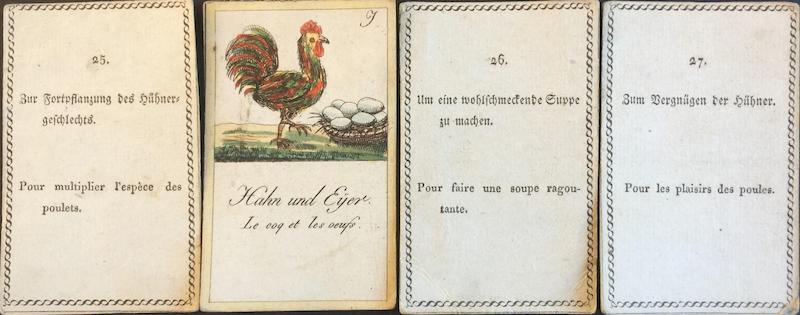 25.
Zur Fortpflanzung des Hühner-
geschlechts.
Pour multiplier l'espèce des
poulets.
J
Hahn und Eÿer.
Le coq et les oeufs.
26.
Um eine wohlschmeckende Suppe
zu machen.
Pour faire une soupe ragou-
tante.
27.
Zum Vergnügen der Hühner.
Pour les plaisirs des poules.